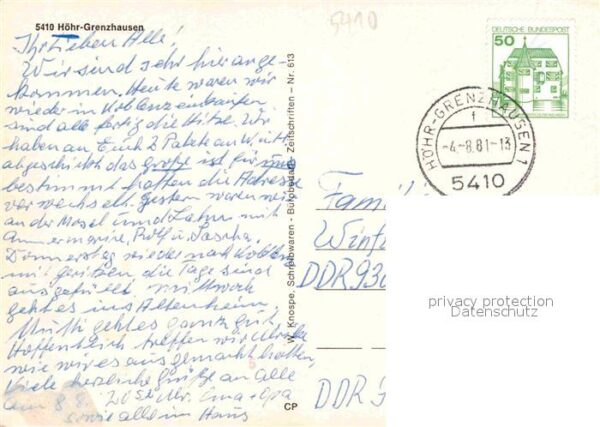 5410 Höhr-Grenzhausen
5410
Ihr Lieben Alle!
Wir sind sehr hier ange-
kommen. Heute waren wir
wieder in Koblenz einkaufen
sind alle fertig die Hitze. Wir
haben an Euch 2 Pakete an
abgeschickt das große ist für
bestimmt hatten die Adresse
verwechselt. Gestern waren wir
an der Mosel und Lahn mit
Annemarie, Rolf u. Sascha.
Donnerstag wieder nach Koblenz
mit die Tage sind
ausgefüllt mittwoch
geht es ins Altenheim.
Mutti geht es ganz gut.
Hoffentlich treffen wir Ulrike
wie wir es ausgemacht hatten,
Viele herzliche Grüße an alle
am 8.8. Uhr. Oma + Opa
sowie alle im Haus
W. Knospe, Schreibwaren - Bürobedarf - Zeitschriften - Nr. 613
CP
DEUTSCHE BUNDESPOST
50
HÖHR-GRENZHAUSEN 1
f
-4.-8.81-13
5410
Fam
Wint
DDR 930
DDR 9
privacy protection
Datenschutz